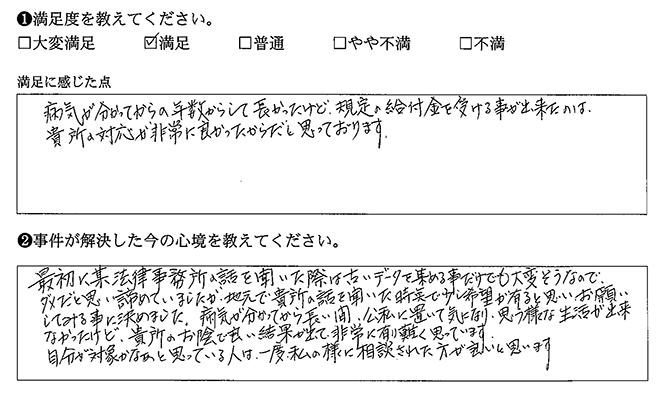 ❶満足度を教えてください。
□大変満足 ☑満足 □普通 □やや不満 □不満
満足に感じた点
病気が分かってからの年数からして長かったけど、規定の給付金を受ける事が出来たのは、
貴所の対応が非常に良かったからだと思っております。
❷事件が解決した今の心境を教えてください。
最初に某法律事務所の話を聞いた際は古いデータを集める事だけでも大変そうなので、
ダメだと思い諦めていましたが、地元で貴所の話を聞いた時点で少し希望が有ると思いお願い
してみる事に決めました。病気が分かってから長い間、公私に置いて気になり、思う様な生活が出来
なかったけど、貴所のお陰で良い結果が出て非常に有難く思っています。
自分が対象かなぁと思っている人は、一度私の様に相談された方が良いと思います